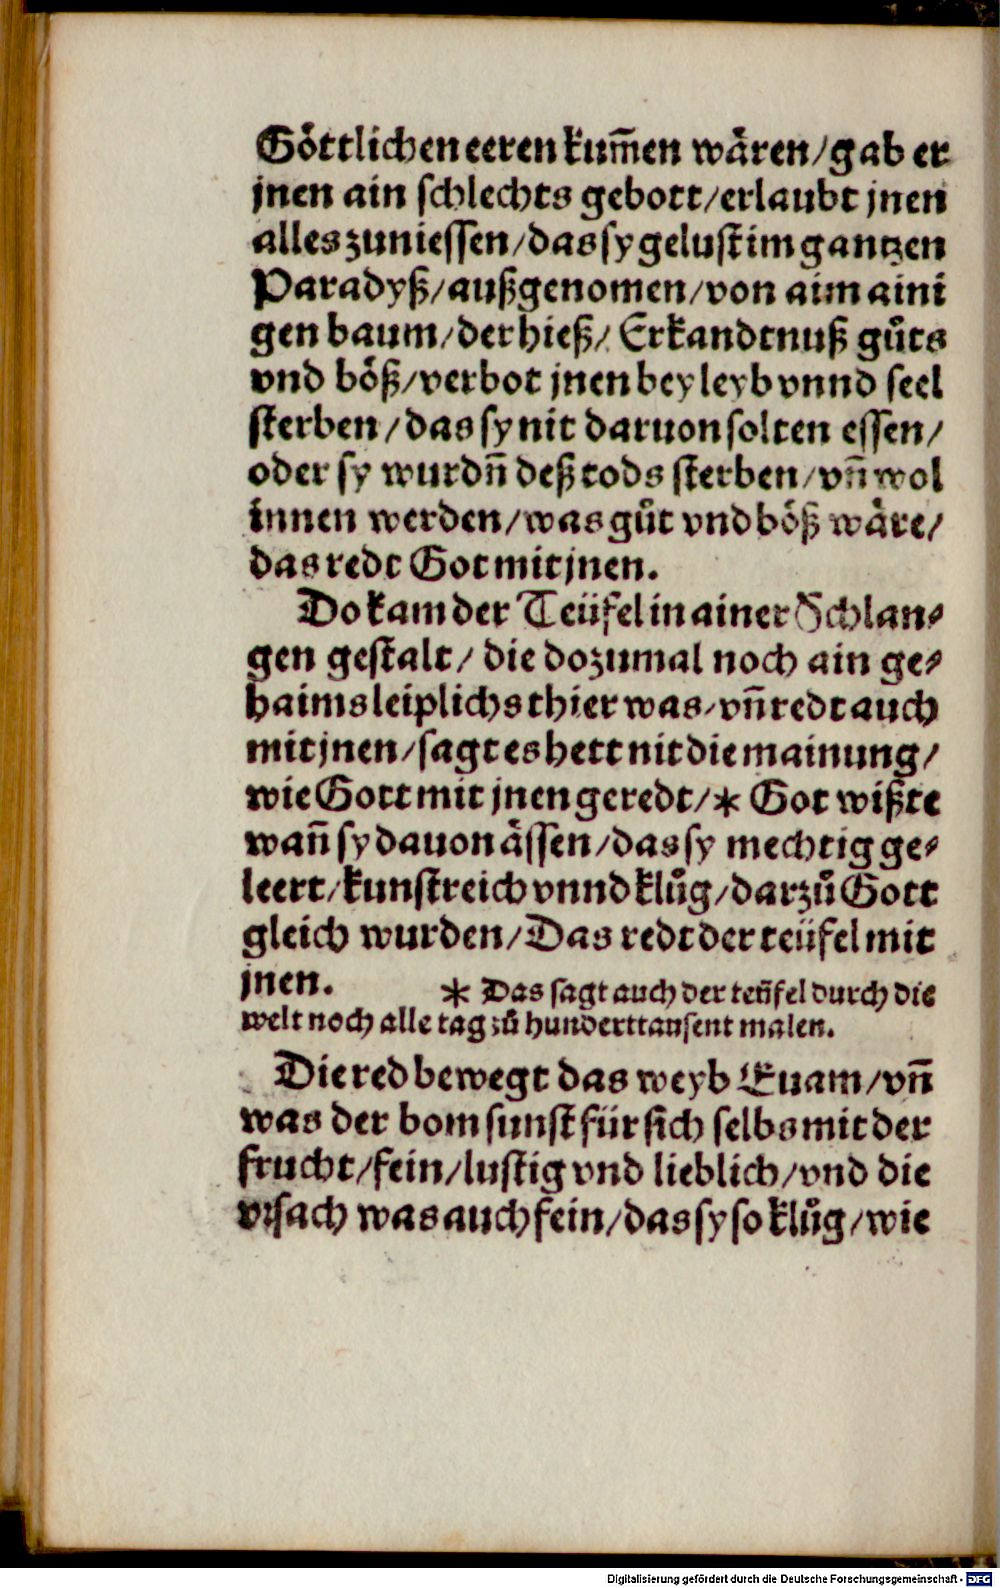 Göttlichen eeren kum̃en wären/gab er
jnen ain schlechts gebott/erlaubt jnen
alles zuniessen/das sy gelust im gantzen
Paradyß/außgenomen/von aim aini
gen baum/der hieß/ Erkandtnuß gůts
vnd böß/verbot jnen bey leyb vnnd seel
sterben/das sy nit daruon solten essen/
oder sy wurdñ deß tods sterben/vñ wol
innen werden/was gůt vnd böß wäre/
das redt Got mit jnen.
Do kam der Teüfel in ainer Schlan⸗
gen gestalt/ die dozumal noch ain ge⸗
haims leiplichs thier was/vñ redt auch
mit jnen/sagt es hett nit die mainung/
wie Gott mit jnen geredt/* Got wißte
wañ sy dauon ässen/das sy mechtig ge⸗
leert/kunstreich vnnd klůg/darzů Gott
gleich wurden/Das redt der teüfel mit
jnen.
* Das sagt auch der teüfel durch die
welt noch alle tag zů hunderttausent malen.
Die red bewegt das weyb Euam/vñ
was der bom sunst für sich selbs mit der
frucht/fein/lustig vnd lieblich/vnd die
vrsach was auch fein/das sy so klůg/wie
Digitalisierung gefördert durch die Deutsche Forschungsgemeinschaft - DFG